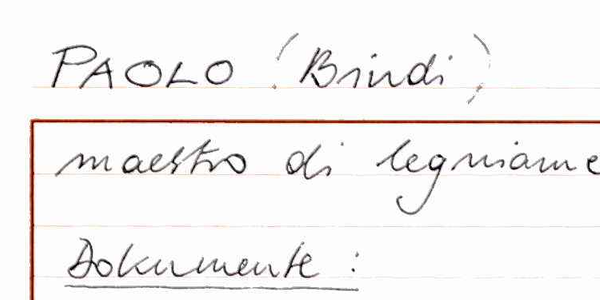 PAOLO (Brindi)
maestro di legniame
Dokumente :